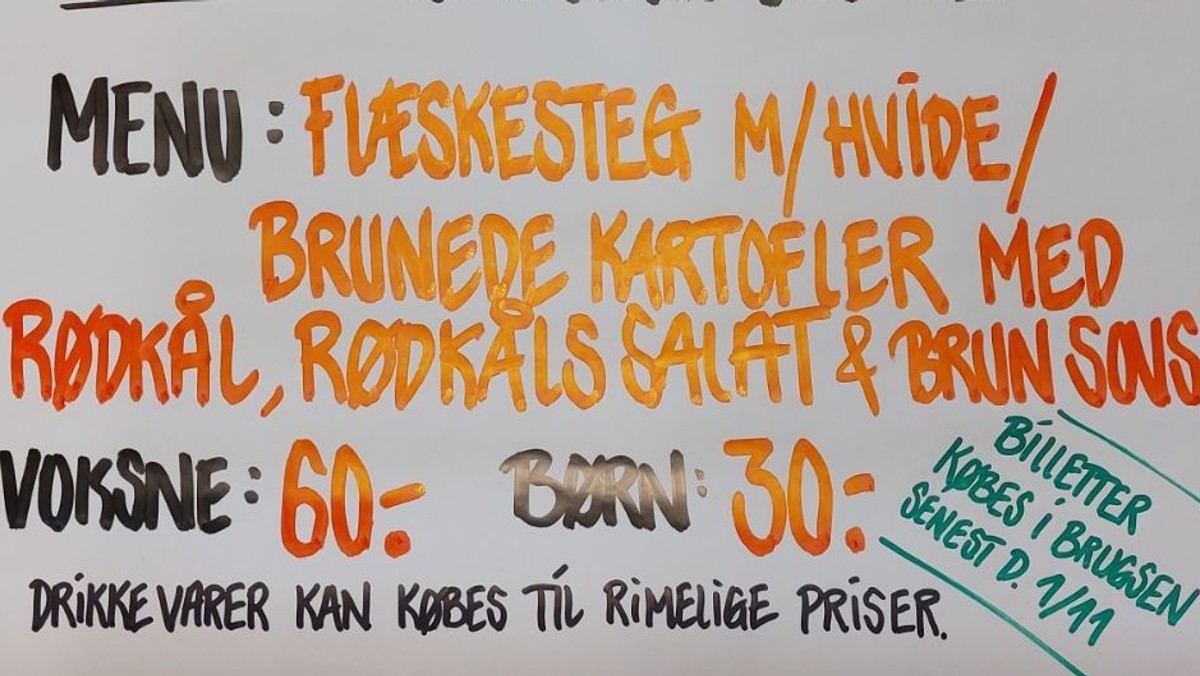 MENU: FLÆSKESTEG M/HVIDE/
BRUNEDE KARTOFLER MED
RØDKÅL, RØDKÅLS SALAT & BRUN SOVS
VOKSNE: 60.- BØRN: 30:-
BILLETTER
KØBES I BRUGSEN
SENEST D. 1/11
DRIKKEVARER KAN KØBES TIL RIMELIGE PRISER.